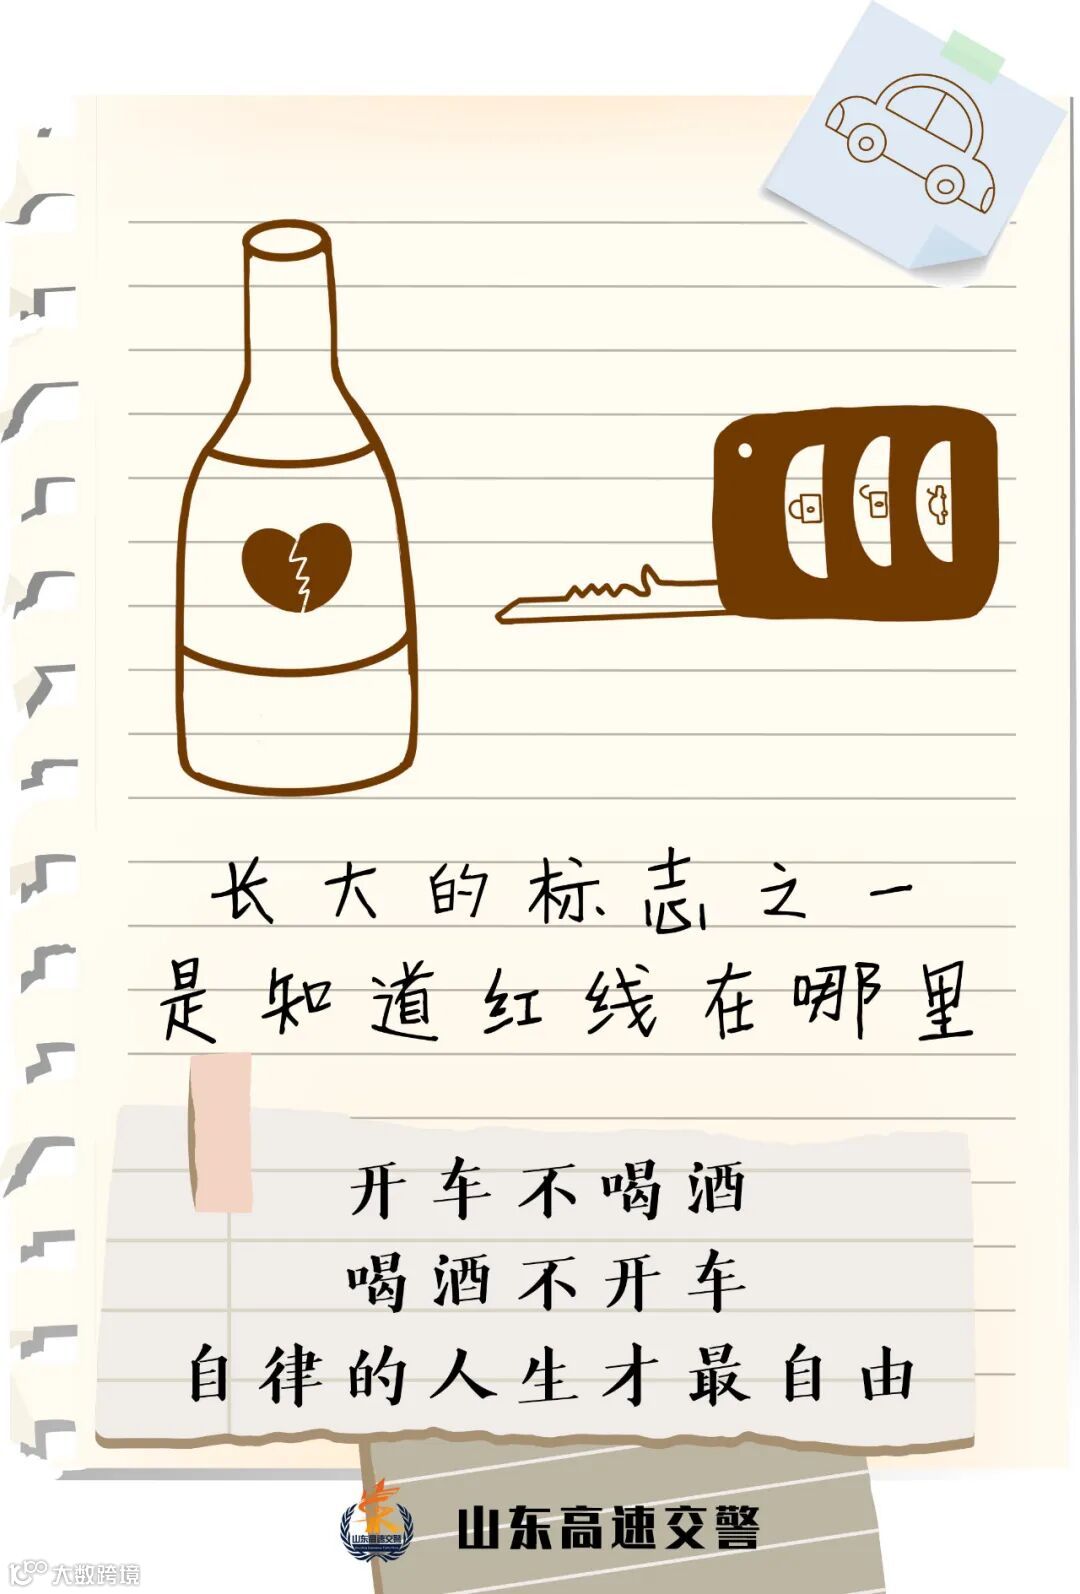 长大的标志之一
是知道红线在哪里
开车不喝酒
喝酒不开车
自律的人生才最自由
山东高速交警
山东高速交警
大数跨境